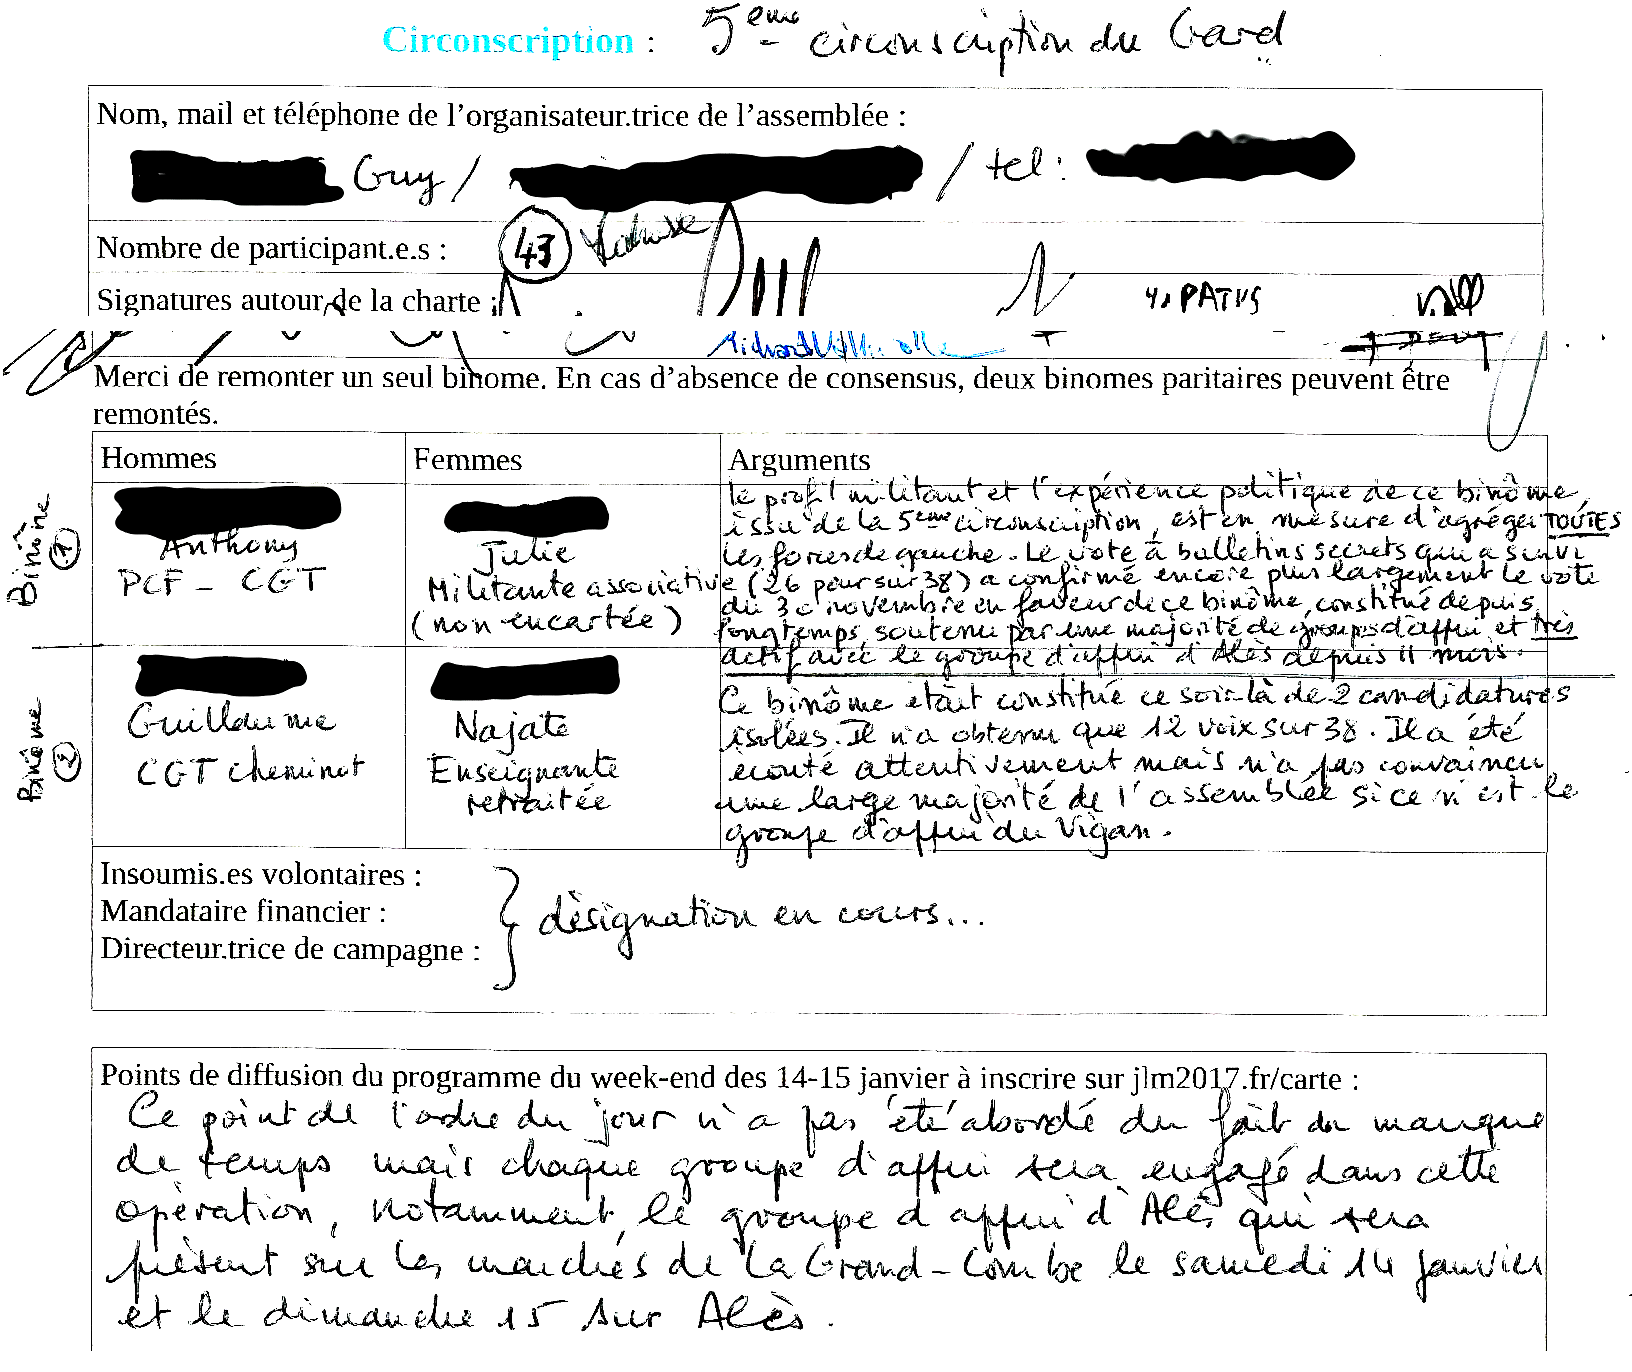 Circonscription : 5ème circonscription du Gard
Nom, mail et téléphone de l'organisateur.trice de l'assemblée :
Guy / / tel :
Nombre de participant.e.s : 43
Signatures autour de la charte :
Merci de remonter un seul binome. En cas d'absence de consensus, deux binomes paritaires peuvent être
remontés.
Hommes Femmes Arguments
Binôme 1
Anthony
PCF - CGT
Julie
Militante associative
(non encartée)
le profil militant et l'expérience politique de ce binôme,
issu de la 5ème circonscription, est en mesure d'agréger TOUTES
les forces de gauche. Le vote à bulletins secrets qui a suivi
(26 pour sur 38) a confirmé encore plus largement le vote
du 30 novembre en faveur de ce binôme, constitué depuis
longtemps, soutenu par une majorité de groupes d'appui et très
actif avec le groupe d'appui d'Alès depuis 11 mois.
Binôme 2
Guillaume
CGT cheminot
Najate
Enseignante
retraitée
Ce binôme était constitué ce soir-là de 2 candidatures
isolées. Il n'a obtenu que 12 voix sur 38. Il a été
écouté attentivement mais n'a pas convaincu
une large majorité de l'assemblée si ce n'est le
groupe d'appui du Vigan.
Insoumis.es volontaires :
Mandataire financier :
Directeur.trice de campagne :
désignation en cours...
Points de diffusion du programme du week-end des 14-15 janvier à inscrire sur jlm2017.fr/carte :
Ce point de l'ordre du jour n'a pas été abordé du fait du manque
de temps mais chaque groupe d'appui sera engagé dans cette
opération, notamment le groupe d'appui d'Alès qui sera
présent sur les marchés de La Grand-Combe le samedi 14 janvier
et le dimanche 15 sur Alès.